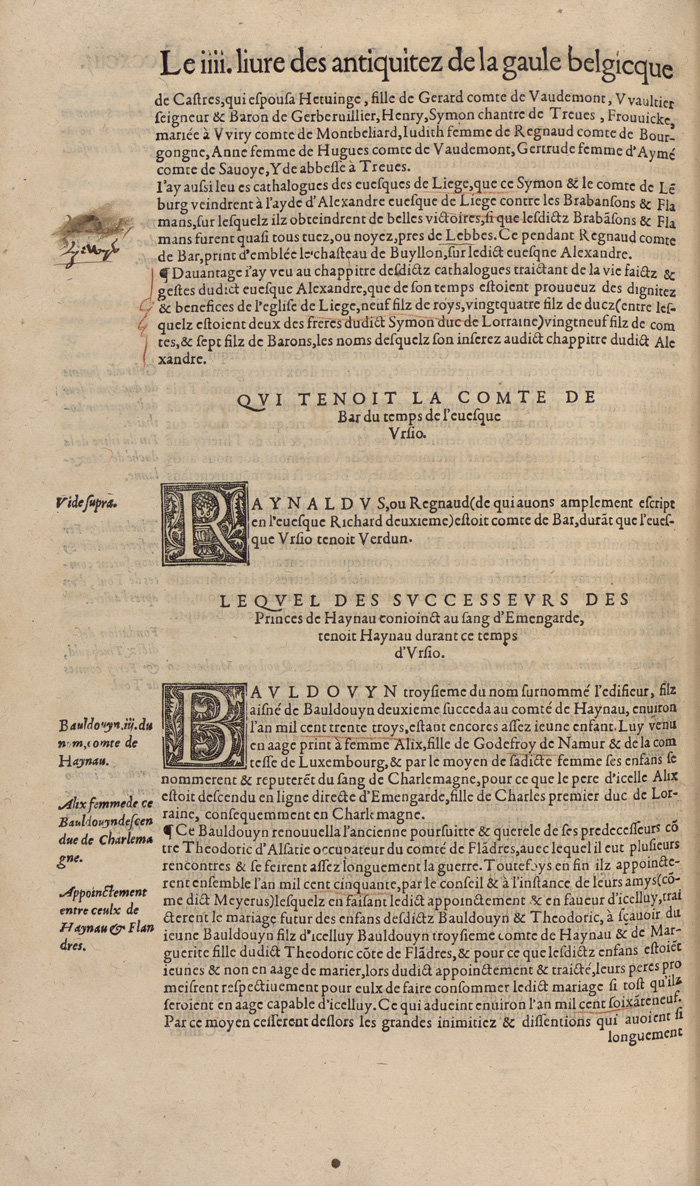 Le iiii. liure des antiquitez de la gaule belgicque
de Castres, qui espousa Hetuinge, fille de Gerard comte de Vaudemont, Vvaultier
seigneur & Baron de Gerberuillier, Henry, Symon chantre de Treues, Frouuicke,
mariée à Vviry comte de Montbeliard, Iudith femme de Regnaud comte de Bour-
gongne, Anne femme de Hugues comte de Vaudemont, Gertrude femme d'Aymé
comte de Sauoye, Yde abbesse à Treues.
I'ay aussi leu es cathalogues des euesques de Liege, que ce Symon & le comte de Lē
burg veindrent à l'ayde d'Alexandre euesque de Liege contre les Brabansons & Fla
mans, sur lesquelz ilz obteindrent de belles victoires, si que lesdictz Brabāsons & Fla
mans furent quasi tous tuez, ou noyez, pres de Lebbes. Ce pendant Regnaud comte
de Bar, print d'emblée le chasteau de Buyllon, sur ledict euesqne Alexandre.
¶ Dauantage i'ay veu au chappitre desdictz cathalogues traictant de la vie faictz &
gestes dudict euesque Alexandre, que de son temps estoient prouueuz des dignitez
& benefices de l'eglise de Liege, neuf filz de roys, vingtquatre filz de ducz (entre les-
quelz estoient deux des freres dudict Symon duc de Lorraine) vingtneuf filz de com
tes, & sept filz de Barons, les noms desquelz son inserez audict chappitre dudict Ale
xandre.
QVI TENOIT LA COMTE DE
Bar du temps de l'euesque
Vrsio.
Vide suprà.
RAYNALDVS, ou Regnaud (de qui auons amplement escript
en l'euesque Richard deuxieme) estoit comte de Bar, durāt que l'eues-
que Vrsio tenoit Verdun.
LEQVEL DES SVCCESSEVRS DES
Princes de Haynau conioinct au sang d'Emengarde,
tenoit Haynau durant ce temps
d'Vrsio.
BAVLDOVYN troysieme du nom surnommé l'edifieur, filz
aisné de Bauldouyn deuxieme succeda au comté de Haynau, enuiron
l'an mil cent trente troys, estant encores assez ieune enfant. Luy venu
en aage print à femme Alix, fille de Godefroy de Namur & de la com
tesse de Luxembourg, & par le moyen de sadicte femme ses enfans se
nommerent & reputerēt du sang de Charlemagne, pour ce que le pere d'icelle Alix
estoit descendu en ligne directe d'Emengarde, fille de Charles premier duc de Lor-
raine, consequemment en Charlemagne.
¶ Ce Bauldouyn renouuella l'ancienne poursuitte & querele de ses predecesseurs cō
tre Theodoric d'Alsatie occupateur du comté de Flādres, auec lequel il eut plusieurs
rencontres & se feirent assez longuement la guerre. Toutefoys en fin ilz appoincte-
rent ensemble l'an mil cent cinquante, par le conseil & à l'instance de leurs amys (cō-
me dict Meyerus) lesquelz en faisant ledict appoinctement & en faueur d'icelluy, trai
cterent le mariage futur des enfans desdictz Bauldouyn & Theodoric, à sçauoir du
ieune Bauldouyn filz d'icelluy Bauldouyn troysieme comte de Haynau & de Mar-
guerite fille dudict Theodoric cōte de Flādres, & pource que lesdictz enfans estoiēt
ieunes & non en aage de marier, lors dudict appoinctement & traicté, leurs peres pro
meisrent respectiuement pour eulx de faire consommer ledict mariage si tost qu'ilz
seroient en aage capable d'icelluy. Ce qui adueint enuiron l'an mil cent soixāteneuf.
Par ce moyen cesserent deslors les grandes inimitiez & dissentions qui auoient si
longuement
Bauldouyn. iij. du
nom, comte de
Haynau.
Alix femme de ce
Bauldouyn descen
due de Charlema
gne.
Appoinctement
entre ceulx de
Haynau & Flan
dres.